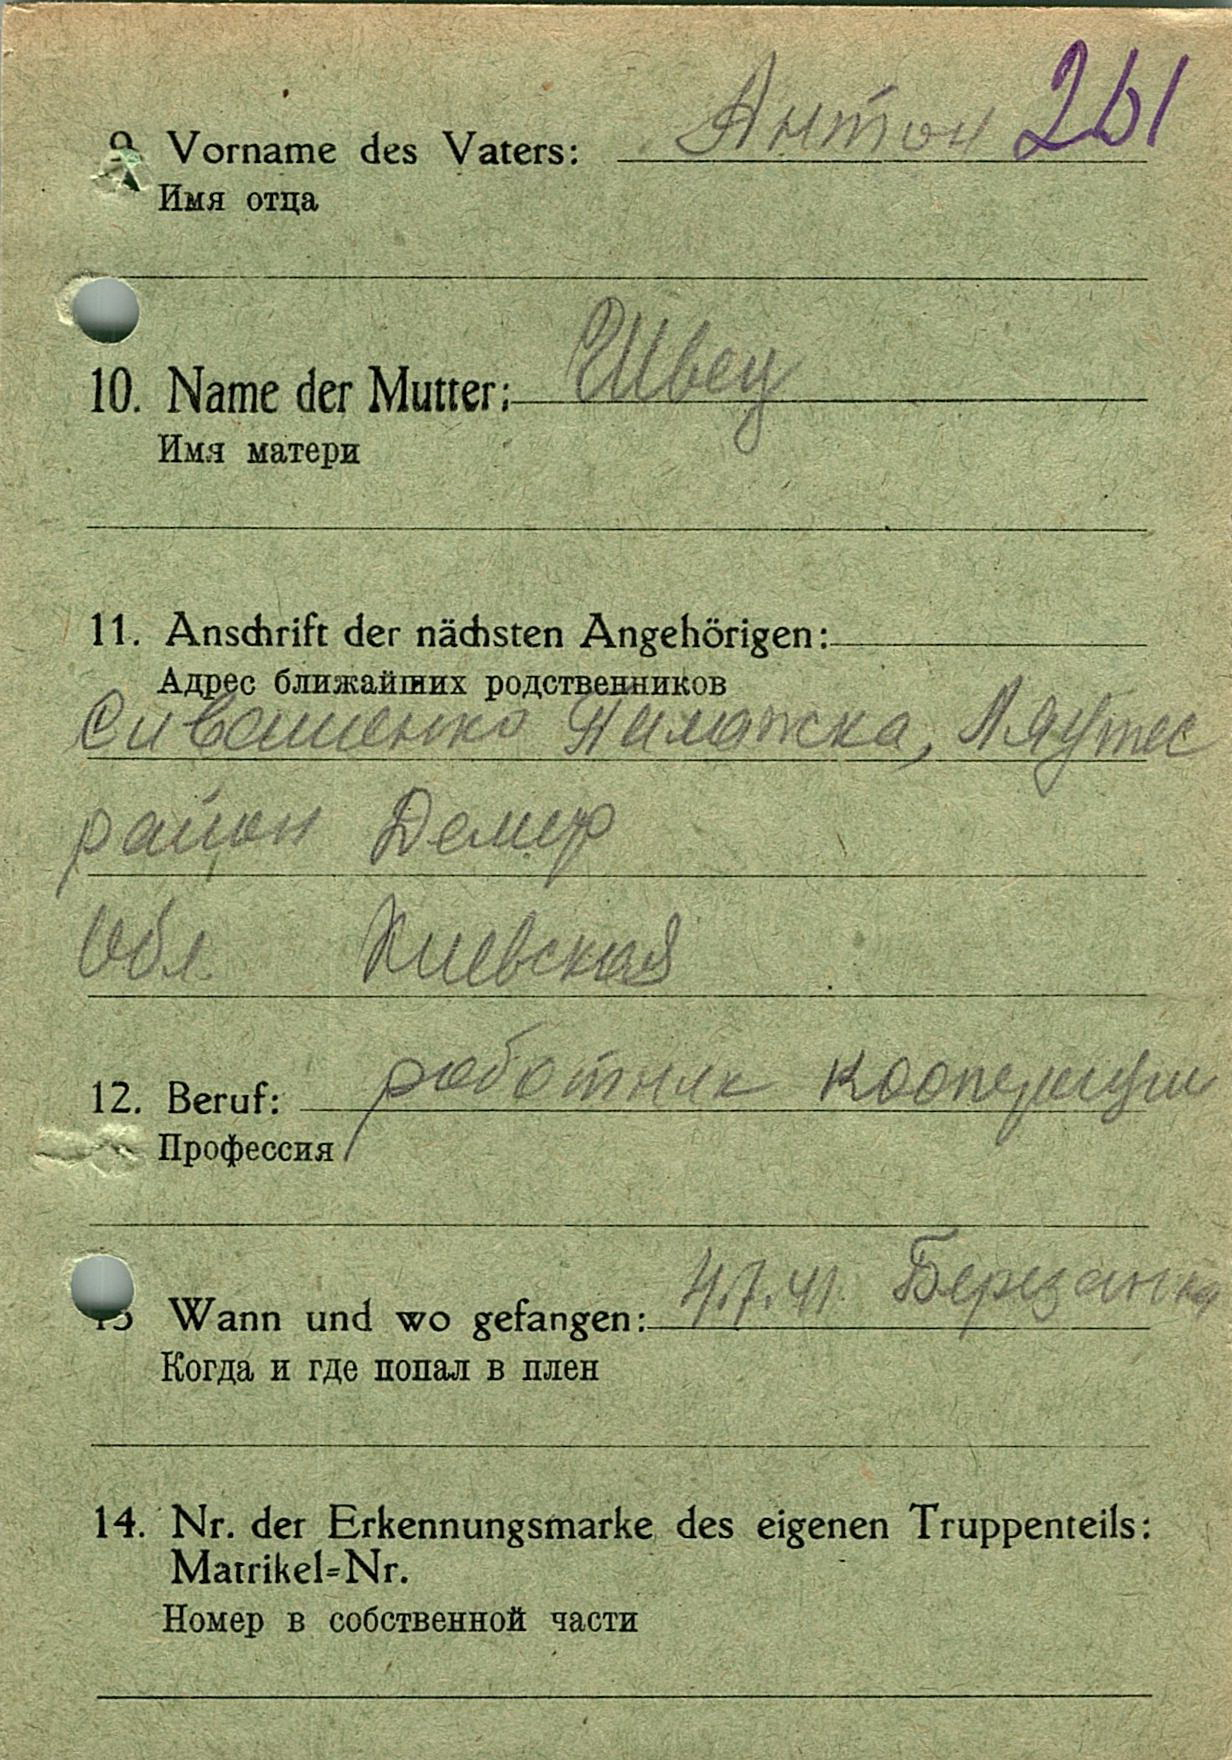 Антон 261
9 Vorname des Vaters:
Имя отца
Швец
10. Name der Mutter:
Имя матери
11. Anschrift der nächsten Angehörigen:
Адрес ближайших родственников
Сивашенко Лаутес
район Демер
Обл. Киевская
12. Beruf: работник кооперации
Профессия
13 Wann und wo gefangen: 4.7.41. Березанка
Когда и где попал в плен
14. Nr. der Erkennungsmarke des eigenen Truppenteils:
Matrikel=Nr.
Номер в собственной части